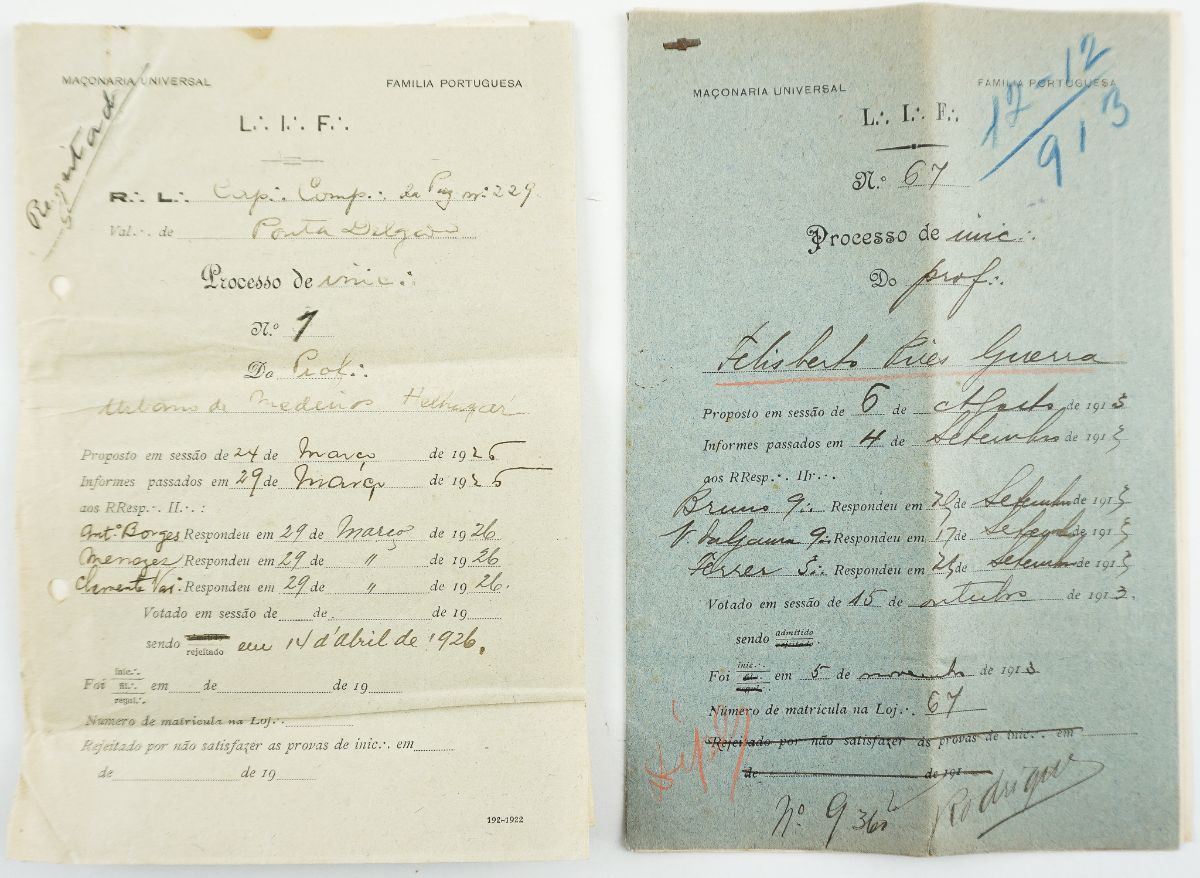 MAÇONARIA UNIVERSAL FAMILIA PORTUGUESA
L∴ I∴ F∴
R∴ L∴ Cap∴ Comp∴ da Paz nº 229
Val∴ de Ponta Delgada
Processo de inic∴
N.º 1
Do Prof∴
Urbano de Medeiros
Proposto em sessão de 24 de Março de 1926
Informes passados em 29 de Março de 1926
aos RResp∴ II∴ :
Antº Borges Respondeu em 29 de Março de 1926
Menezes Respondeu em 29 de " de 1926
Clemente Respondeu em 29 de " de 1926.
Votado em sessão de de de 19
sendo admitido
rejeitado em 14 d'abril de 1926.
inic∴
Foi fil∴ em de de 19
regul∴
Número de matricula na Loj∴
Rejeitado por não satisfazer as provas de inic∴ em
de de 19
192-1922
MAÇONARIA UNIVERSAL FAMILIA PORTUGUESA
17-12
913
L∴ I∴ F∴
N.º 67
Processo de inic∴
Do prof∴
Felisberto Pires Guerra
Proposto em sessão de 6 de Agosto de 1913
Informes passados em 4 de Setembro de 1913
aos RResp∴ IIr∴
Bruno 9∴ Respondeu em de Setembro de 1913
V. da Gama 9∴ Respondeu em 17 de Setembro de 1913
Ferrer 3∴ Respondeu em de Setembro de 1913
Votado em sessão de 15 de outubro de 1913.
sendo admitido
rejeitado.
inic∴
Foi fil∴ em 5 de novembro de 1913
regul∴
Número de matricula na Loj∴ 67
Rejeitado por não satisfazer as provas de inic∴ em
de de 191
Nº 9360 Rodrigues